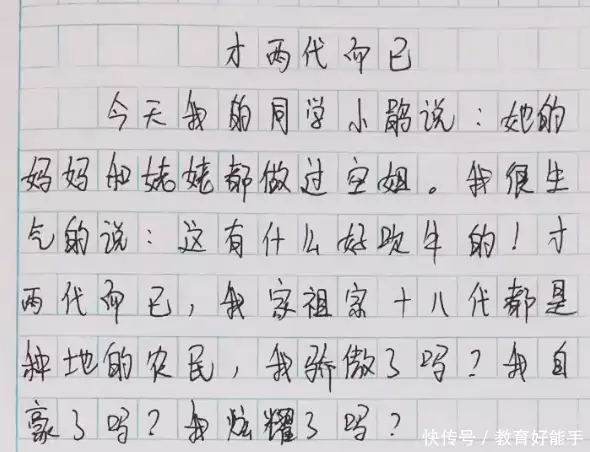 才两代而已
今天我的同学小鹃说：她的
妈妈和姥姥都做过空姐。我很生
气的说：这有什么好吹牛的！才
两代而已，我家祖宗十八代都是
种地的农民，我骄傲了吗？我自
豪了吗？我炫耀了吗？
快传号／教育好能手